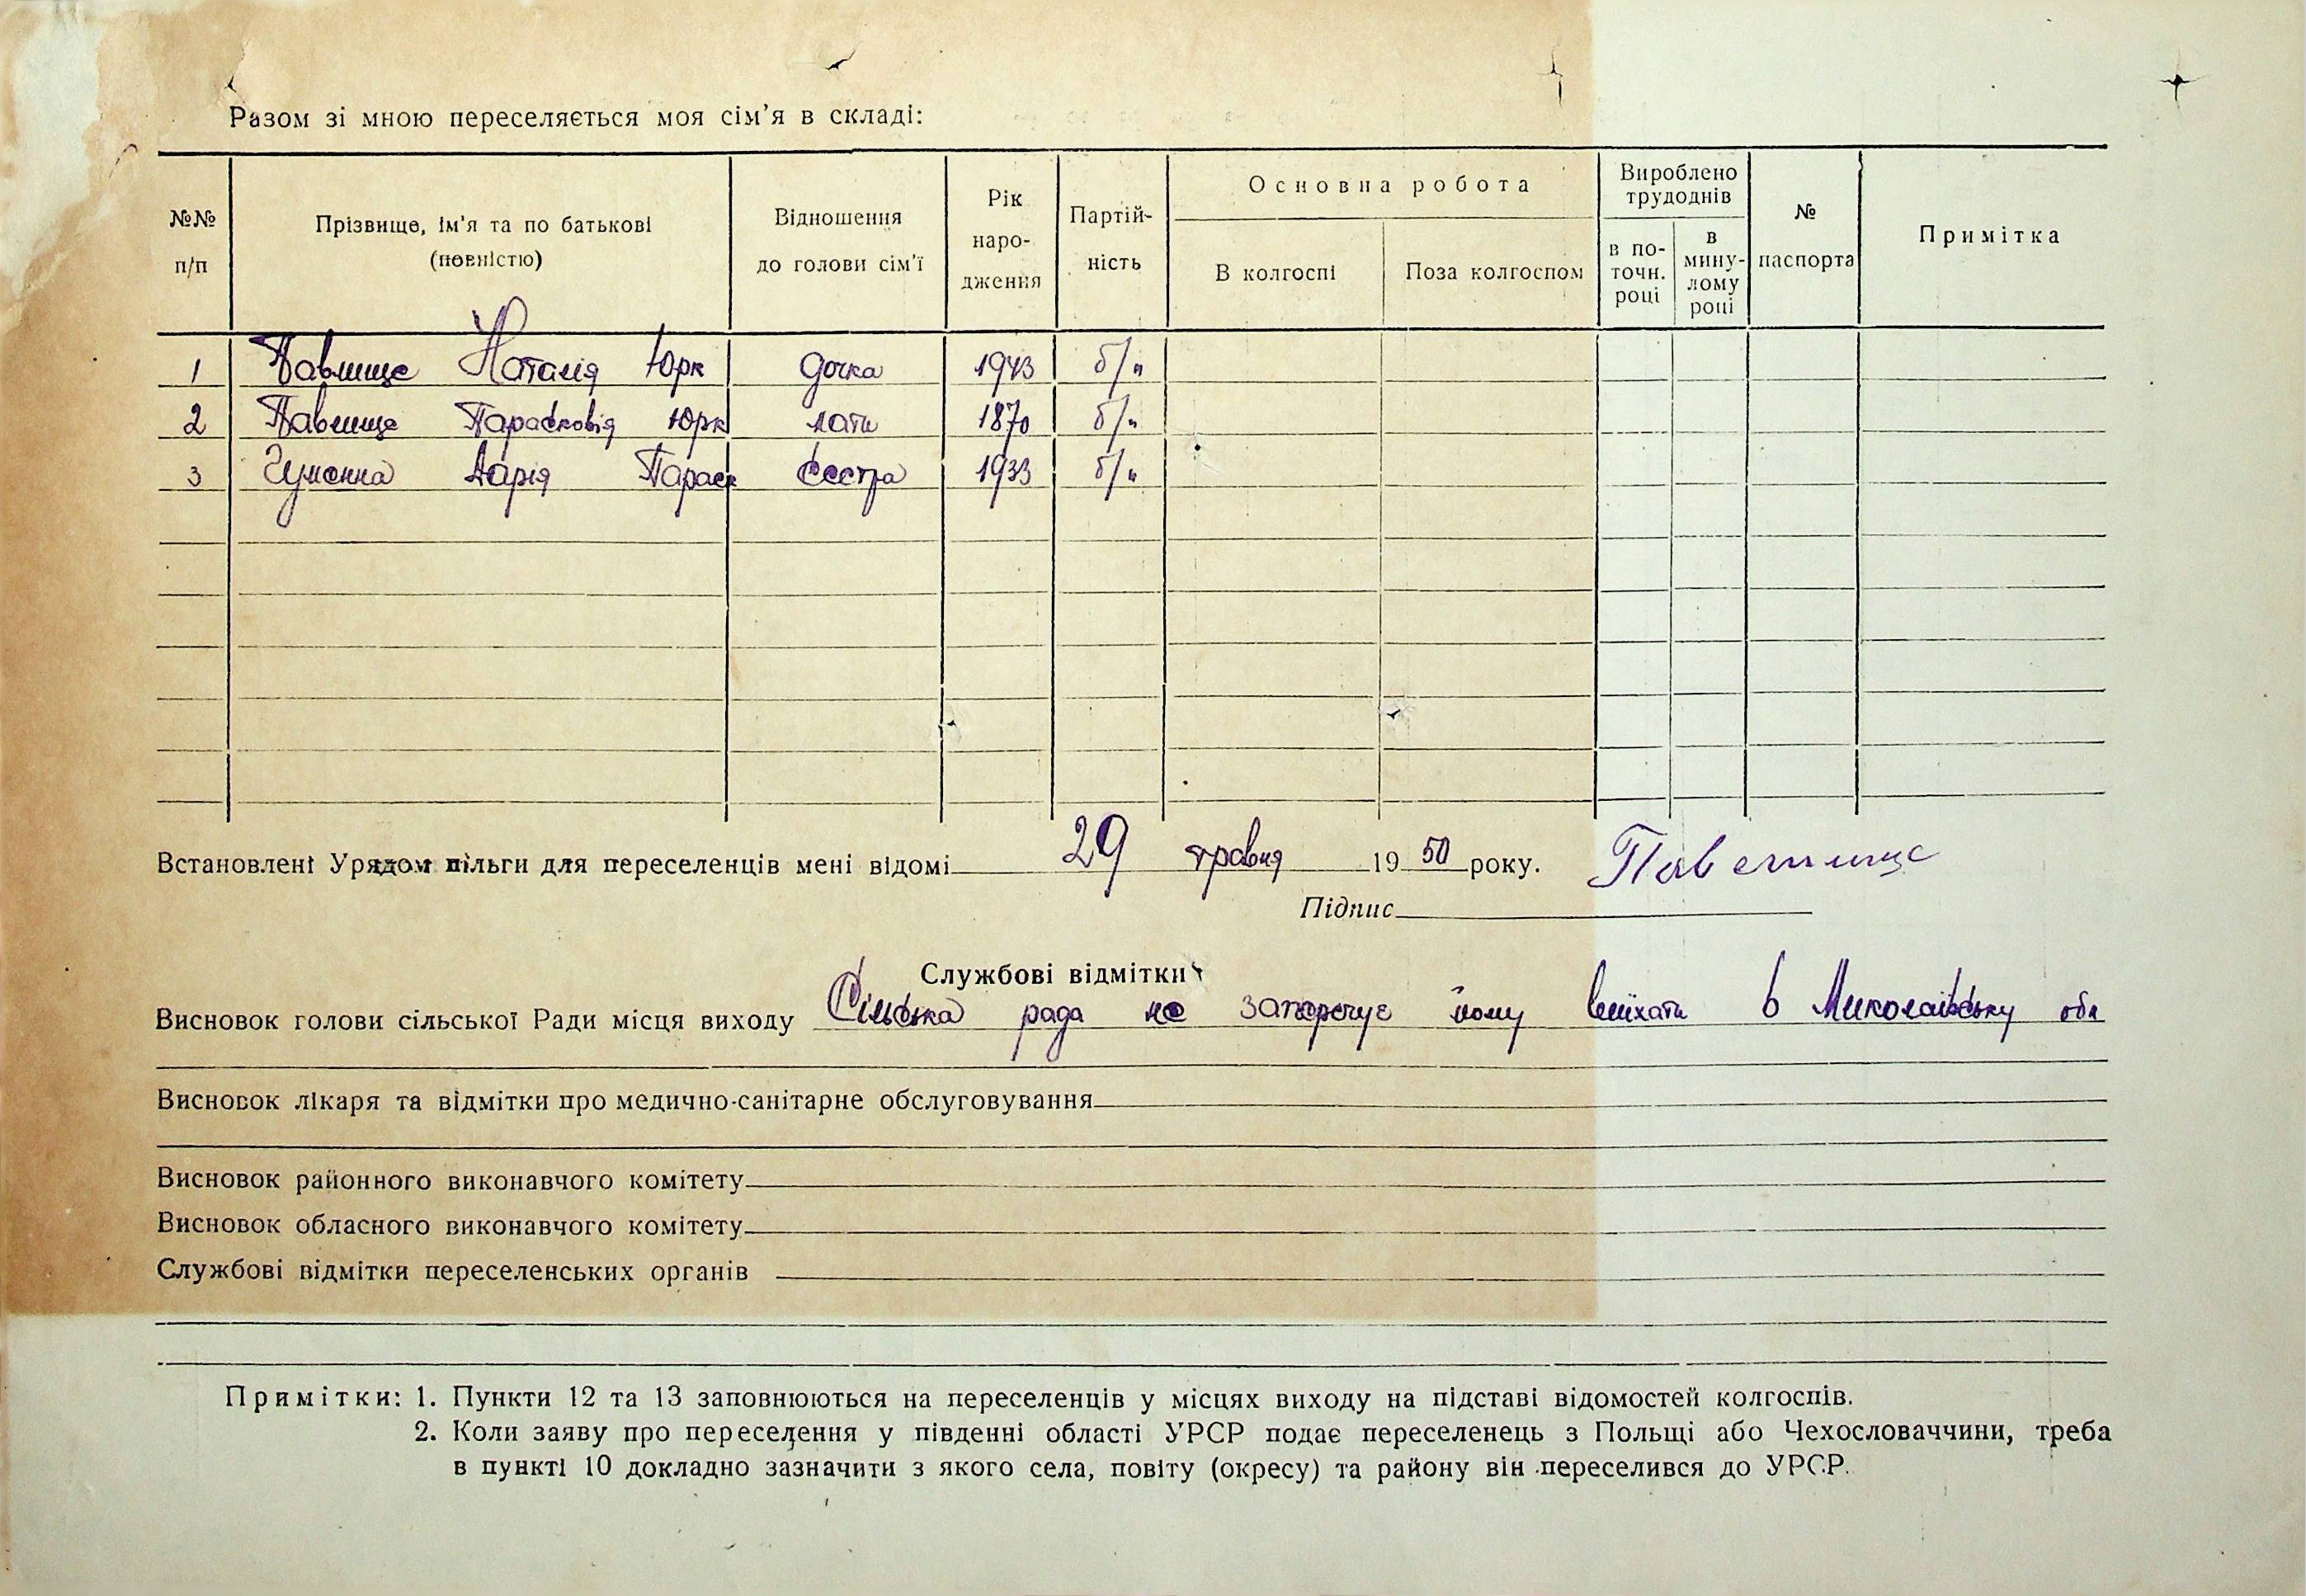 Разом зі мною переселяється моя сім'я в складі:
№№ п/п
Прізвище, ім'я та по батькові (повністю)
Відношення до голови сім'ї
Рік народження
Партійність
Основна робота
В колгоспі
Поза колгоспом
Вироблено трудоднів
в поточн. році
в минулому році
№ паспорта
Примітка
1 Павлище Наталія Юрк дочка 1943 б/п
2 Павлище Парасковія Юрк мати 1870 б/п
3 Гуменна Марія Параск сестра 1933 б/п
Встановлені Урядом пільги для переселенців мені відомі 29 травня 1950 року. Павлище
Підпис
Службові відмітки
Висновок голови сільської Ради місця виходу Сільська рада не заперечує йому виїхати в Миколаївську обл
Висновок лікаря та відмітки про медично-санітарне обслуговування
Висновок районного виконавчого комітету
Висновок обласного виконавчого комітету
Службові відмітки переселенських органів
Примітки: 1. Пункти 12 та 13 заповнюються на переселенців у місцях виходу на підставі відомостей колгоспів.
2. Коли заяву про переселення у південні області УРСР подає переселенець з Польщі або Чехословаччини, треба
в пункті 10 докладно зазначити з якого села, повіту (окресу) та району він переселився до УРСР.